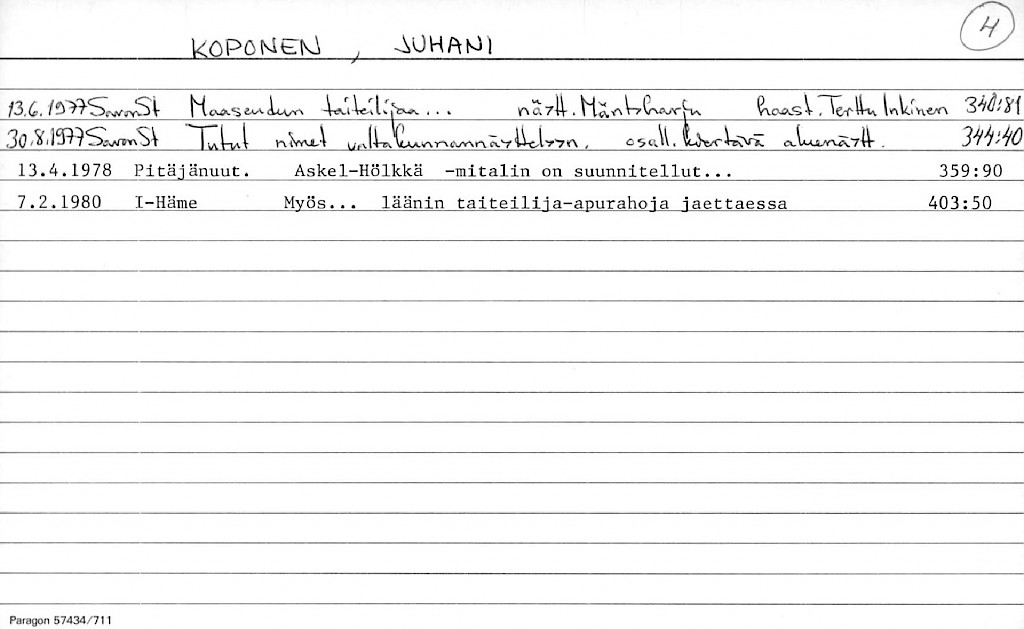 4
KOPONEN, JUHANI
13.6.1977 SavonSt Maaseudun taiteilijaa... näytt. Mäntyharju haast. Terttu Inkinen 340:81
30.8.1977 SavonSt Tutut nimet valtakunnannäyttelyyn, osall. kiertävä aluenäytt. 344:40
13.4.1978 Pitäjänuut. Askel-Hölkkä -mitalin on suunnitellut... 359:90
7.2.1980 I-Häme Myös... läänin taiteilija-apurahoja jaettaessa 403:50
Paragon 57434/711